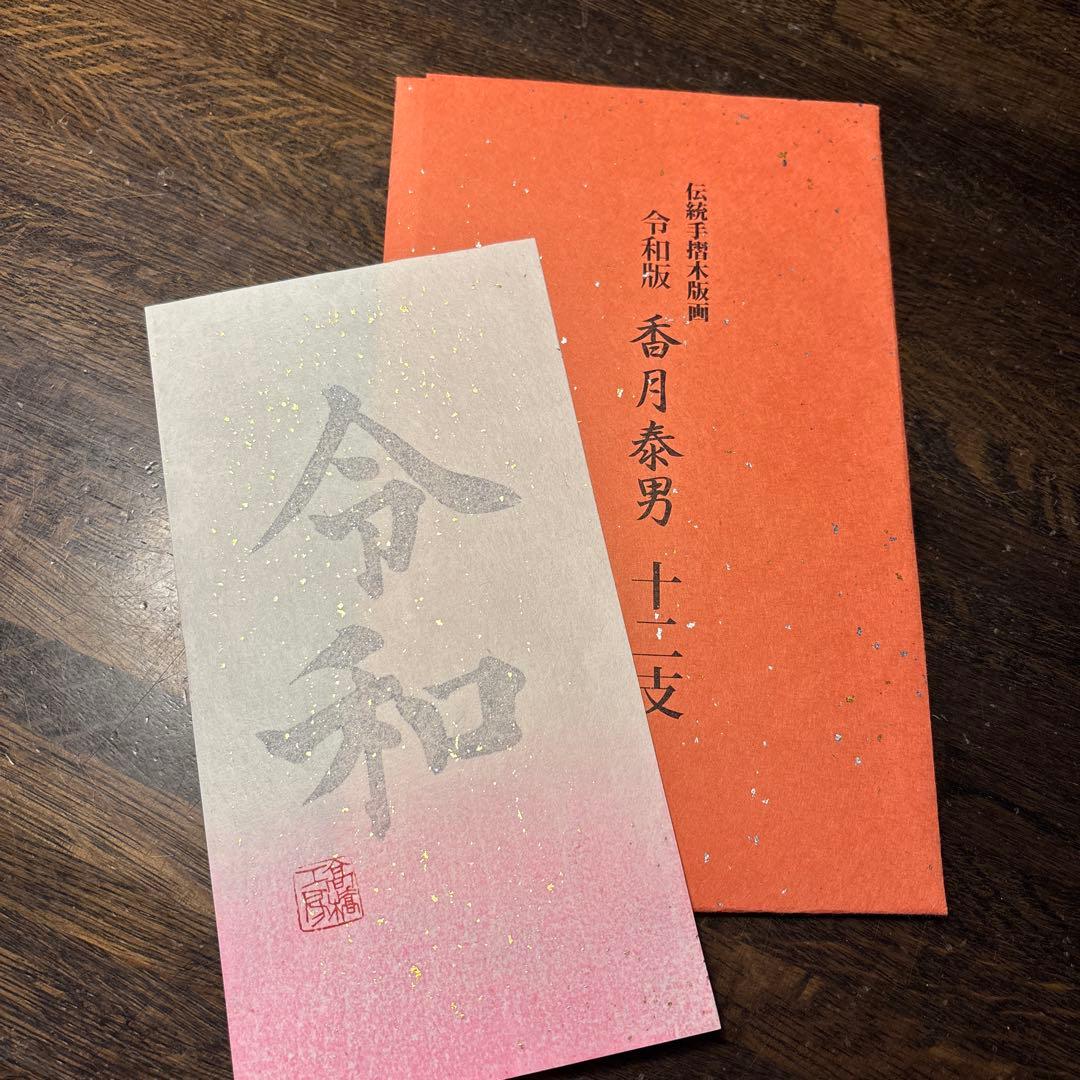 伝統手摺木版画
令和版 香月泰男 十二支
令和
高橋工房